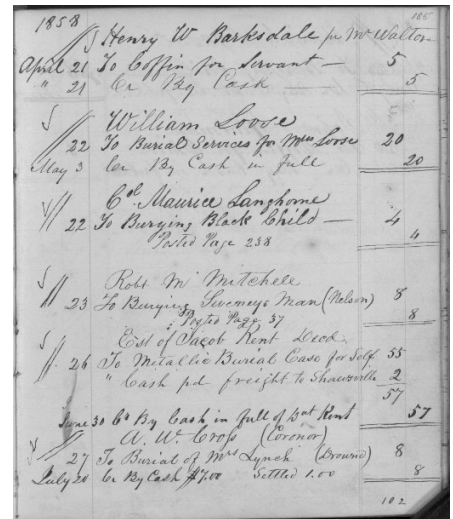 1858 185
Henry W Barksdale pr Mr Walton
April 21 To Coffin for Servant — 5
" 21 Cr By Cash — 5
William Loose
22 To Burial Services for Mrs Loose 20
May 3 Cr By Cash in full 20
Col Maurice Langhorne
22 To Burying Black Child — 4
Posted Page 238 4
Robt M Mitchell
23 To Burying Sweneys Man (Nelson) 8
Posted Page 37 8
Est of Jacob Kent Decd.
26 To Metallic Burial Case for Self 55
" Cash pd freight to Shawsville 2
57
June 30 Cr By Cash in full of Kent 57
W. W. Cross (Coronor)
27 To Burial of Mrs Lynch (Drownd) 8
July 20 Cr By Cash $7.00 Settled 1.00 8
102